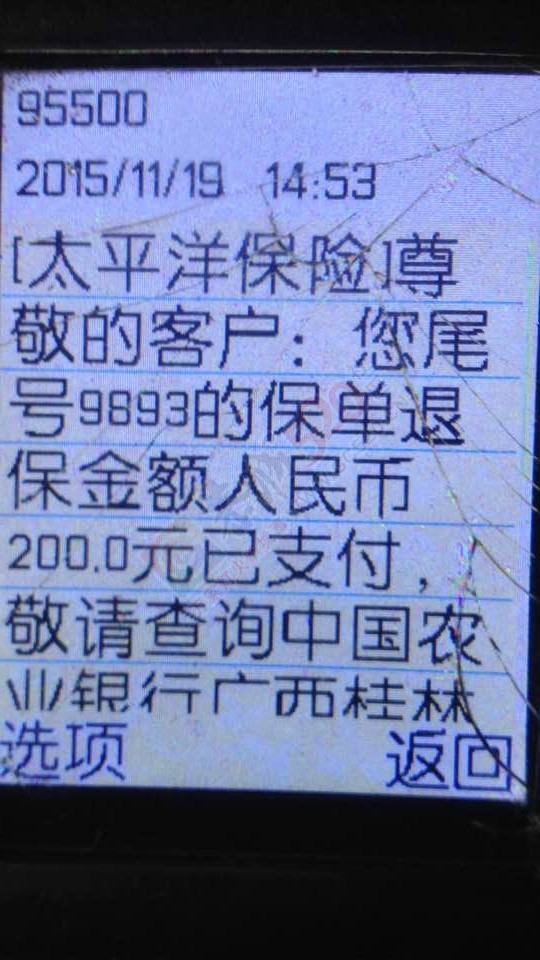 95500
2015/11/19 14:53
[太平洋保险]尊
敬的客户：您尾
号9893的保单退
保金额人民币
200.0元已支付，
敬请查询中国农
业银行广西桂林
选项 返回